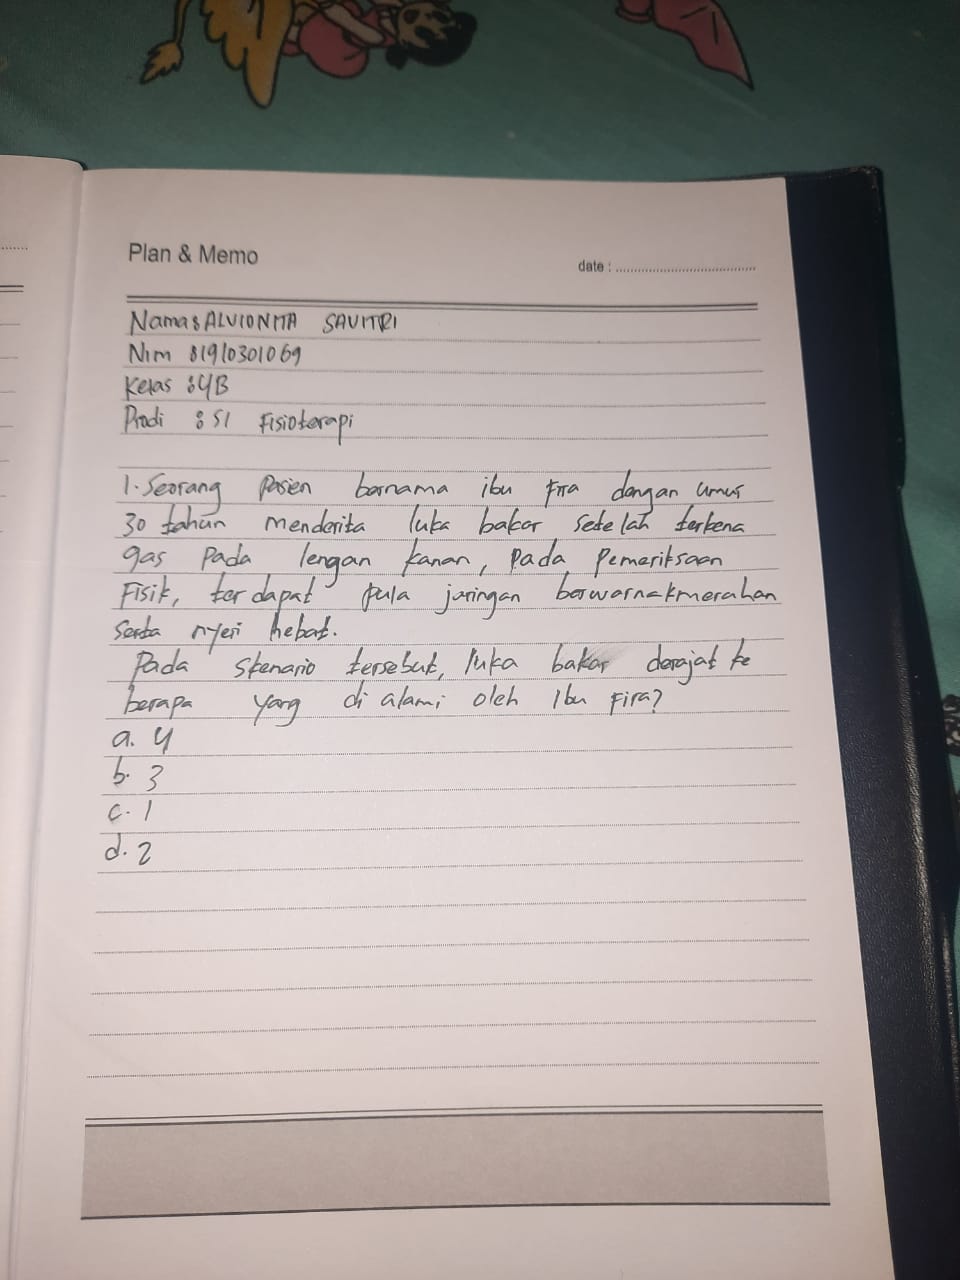 Plan & Memo
date : ........................................
Nama : ALVIONITA SAVITRI
Nim : 1910301069
Kelas : 4B
Prodi : S1 Fisioterapi
1. Seorang Pasien bernama ibu Fira dengan umur
30 tahun menderita luka bakar setelah terkena
gas pada lengan kanan, pada pemeriksaan
Fisik, terdapat pula jaringan berwarnakmerahan
serta nyeri hebat.
Pada skenario tersebut, luka bakar derajat ke
berapa yang di alami oleh Ibu Fira?
a. 4
b. 3
c. 1
d. 2